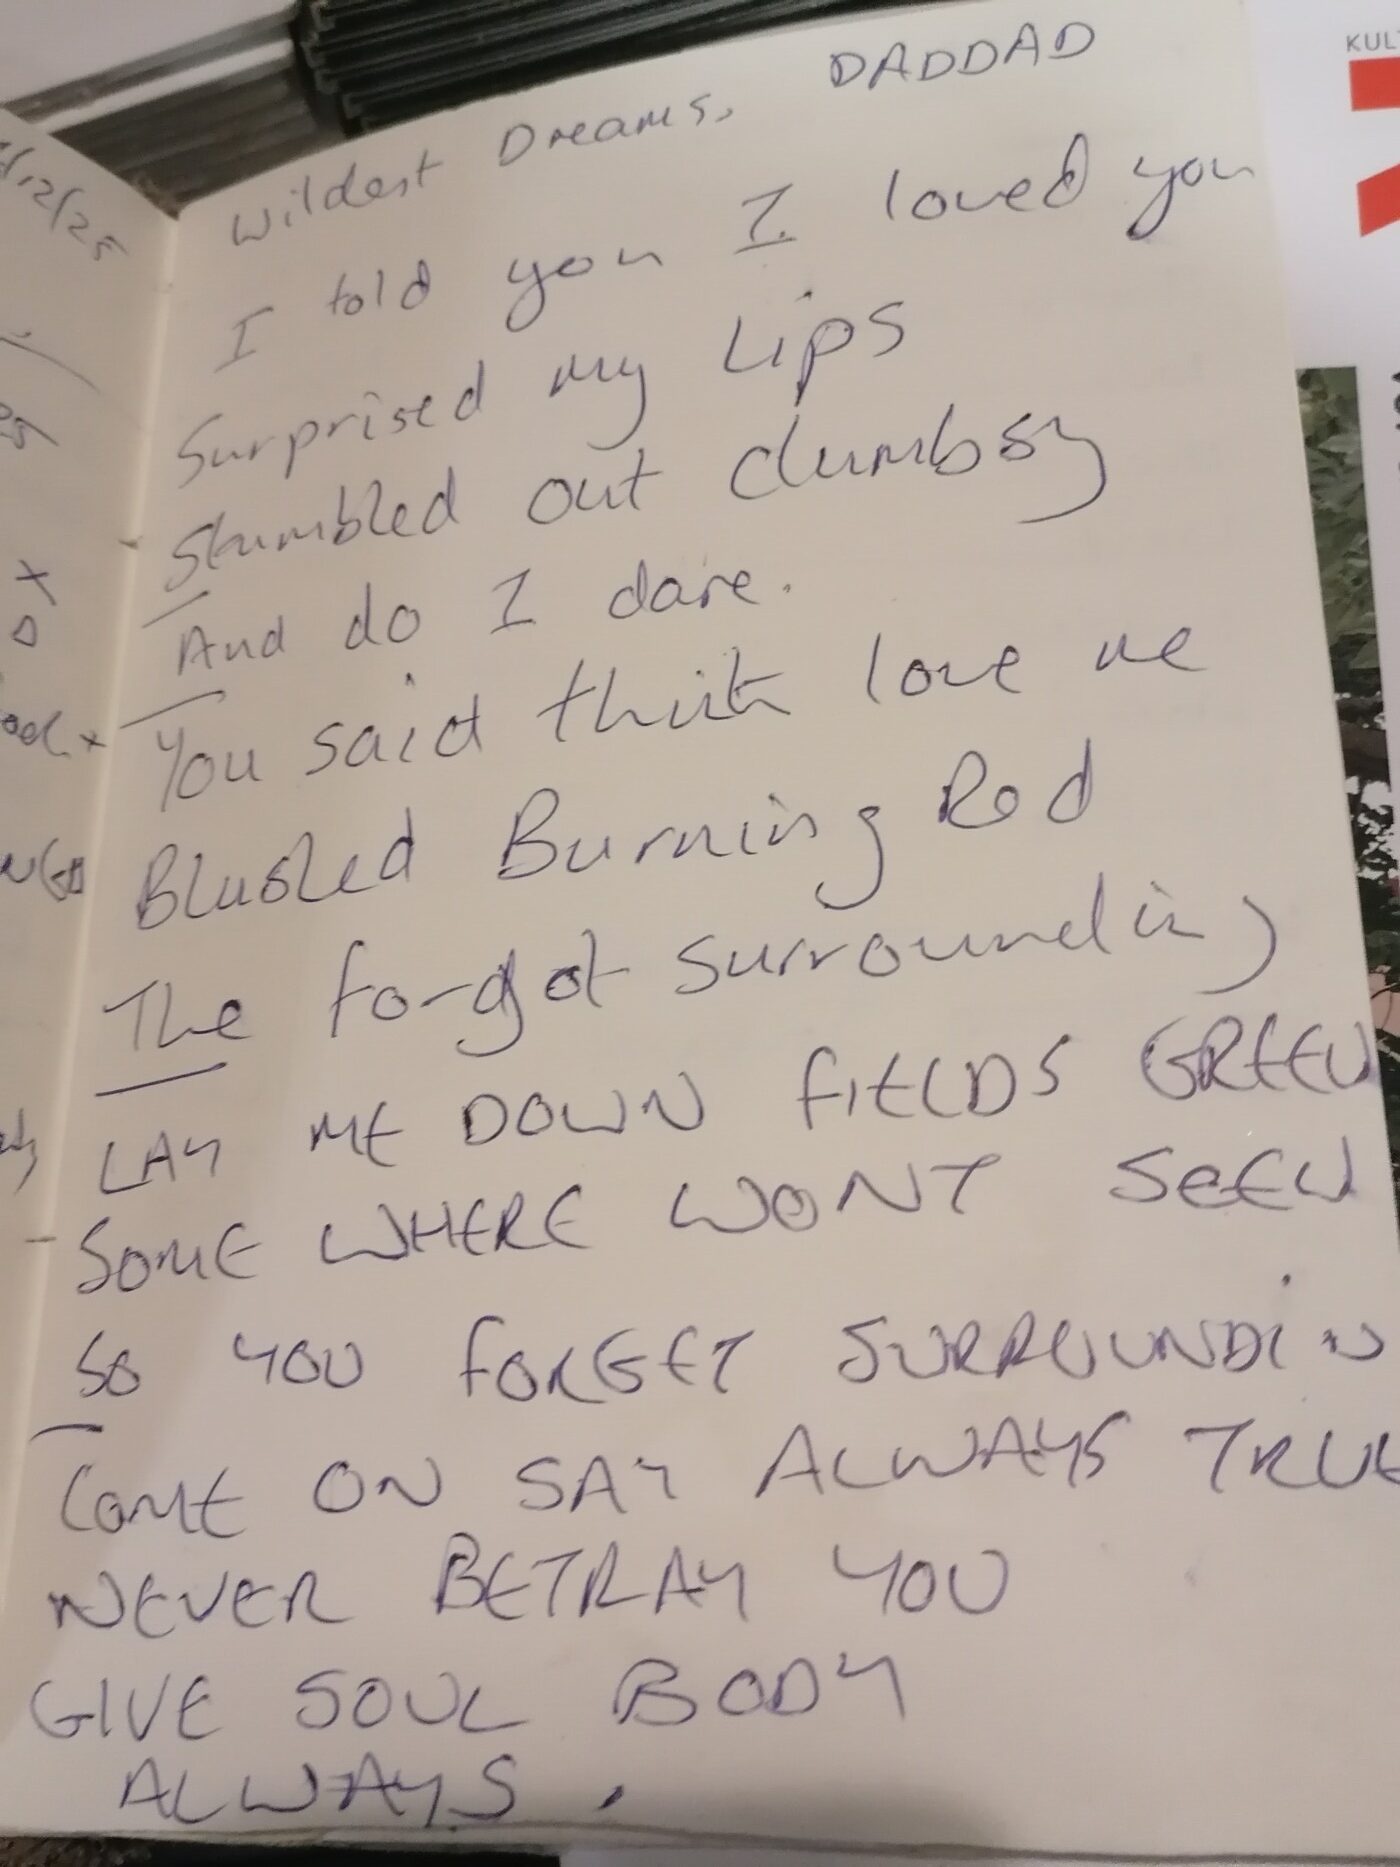 Wildest Dreams. DADDAD
I told you I loved you
Surprised my Lips
Stumbled out clumbsy
And do I dare.
You said think love me
Blushed Burning Red
The forgot surrounding
LAY ME DOWN FIELDS GREEN
SOME WHERE WONT SEEN
SO YOU FORGET SURROUNDIN
COME ON SAY ALWAYS TRUE
NEVER BETRAY YOU
GIVE SOUL BODY
ALWAYS.
12/25
KULT